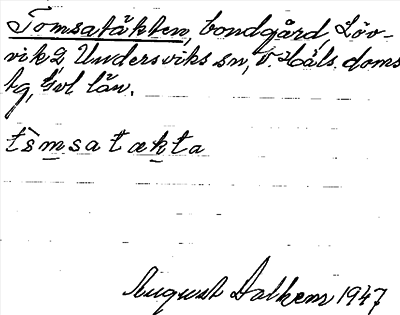 Tomsatäkten, bondgård, Löv-
vik 2, Undersviks sn, V. Häls. doms
tg, Gvl län.
tòmsatækta
August Dalhem 1947